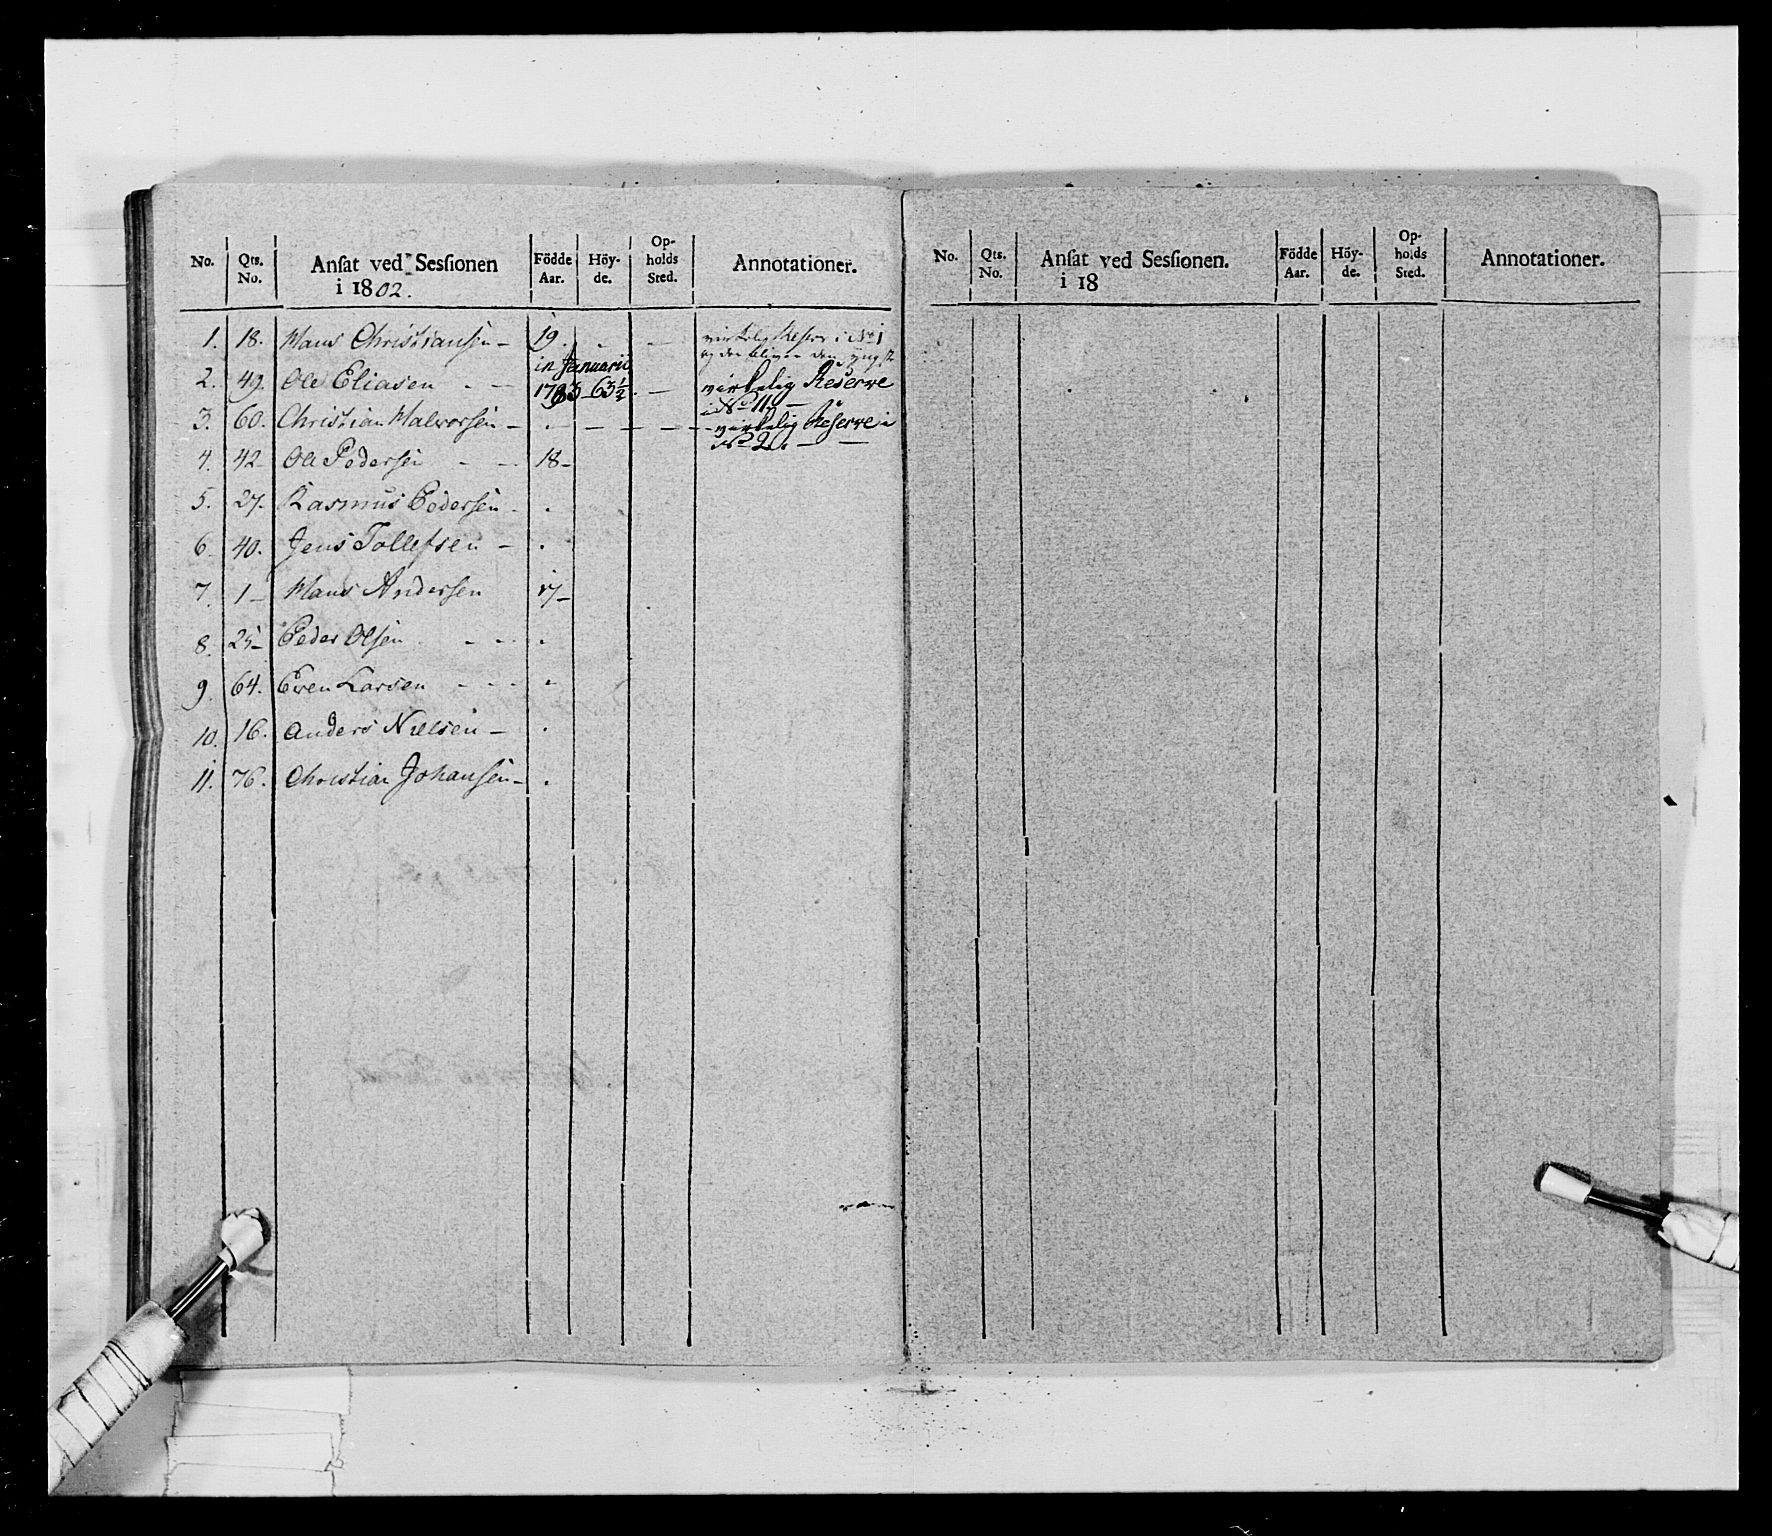 No. Qts. No. Ansat ved Sessionen i 1802. Födde Aar. Höy-de. Op-holds Sted. Annotationer.
1. 18. Hans Christiansen - 19. virkelig Reserve i No 1
og der bliver den yngste
in Januario
2. 49. Ole Eliasen - 1783 - 63½. - virkelig Reserve
i No 11. -
3. 60. Christian Halvorsen - . - - - - virkelig Reserve i
No 2. - -
4. 42- Ole Pedersen - - 18-
5. 27. Rasmus Pedersen - .
6. 40. Jens Tollefsen - .
7. 1- Hans Andersen 17-
8. 25- Peder Olsen - - - .
9. 64. Even Larsen - - - -
10. 16. Anders Nielsen - .
11. 76. Christian Johansen - .
No. Qts. No. Ansat ved Sessionen. i 18 Födde Aar. Höy-de. Op-holds Sted. Annotationer.